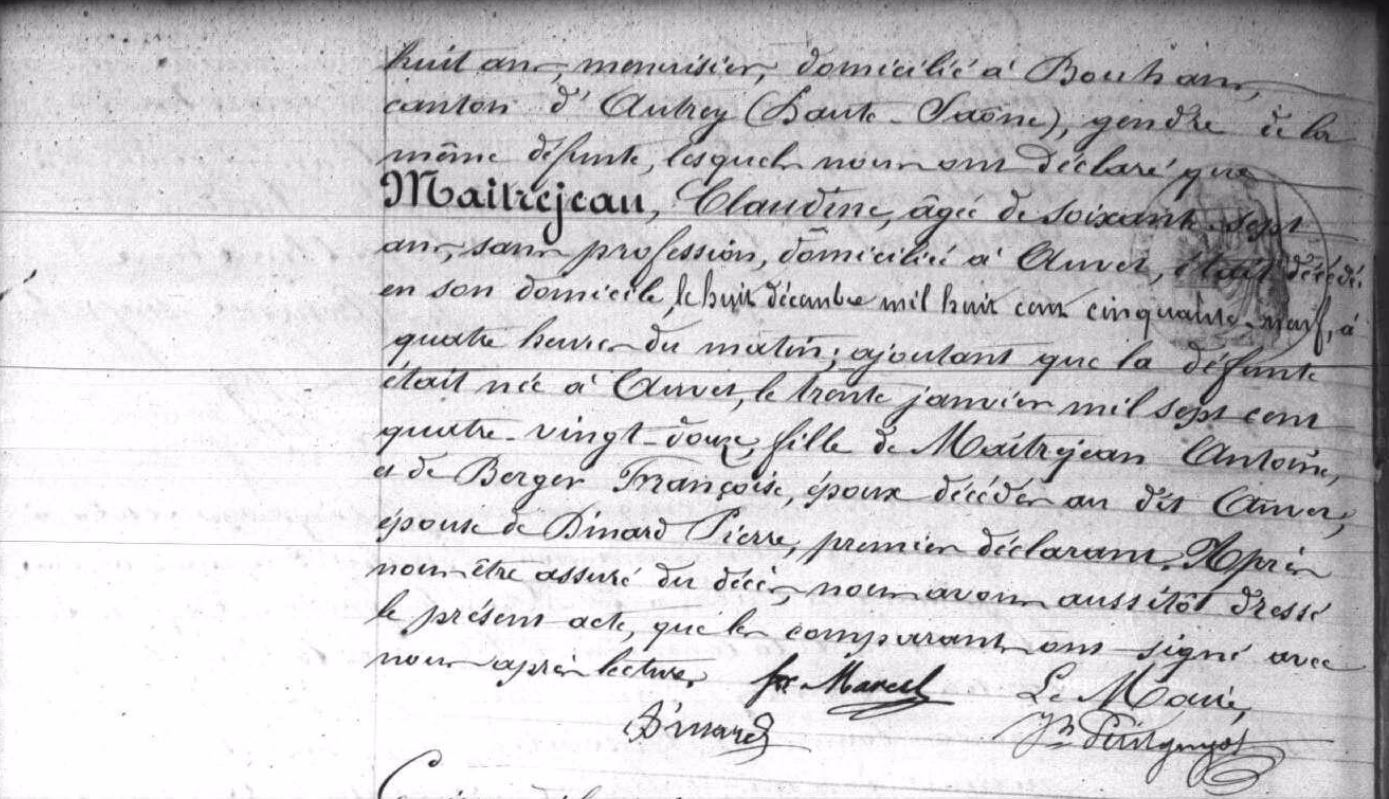 huit ans, menuisier, domicilié à Bouhans,
canton d'Autrey (Haute-Saône), gendre de la
même défunte, lesquels nous ont déclaré que
Maitrejean, Claudine, âgée de soixante-sept
ans, sans profession, domiciliée à Auvet, était décédée
en son domicile, le huit décembre mil huit cent cinquante-neuf, à
quatre heures du matin; ajoutant que la défunte
était née à Auvet, le trente janvier mil sept cent
quatre-vingt-douze, fille de Maîtrejean Antoine,
et de Berger Françoise, époux décédés au dit Auvet,
épouse de Dinard Pierre, premier déclarant. Après
nous être assuré du décès, nous avons aussitôt dressé
le présent acte, que les comparants ont signé avec
nous après lecture.
fx Marcel Le Maire,
Dinard Petitguyot